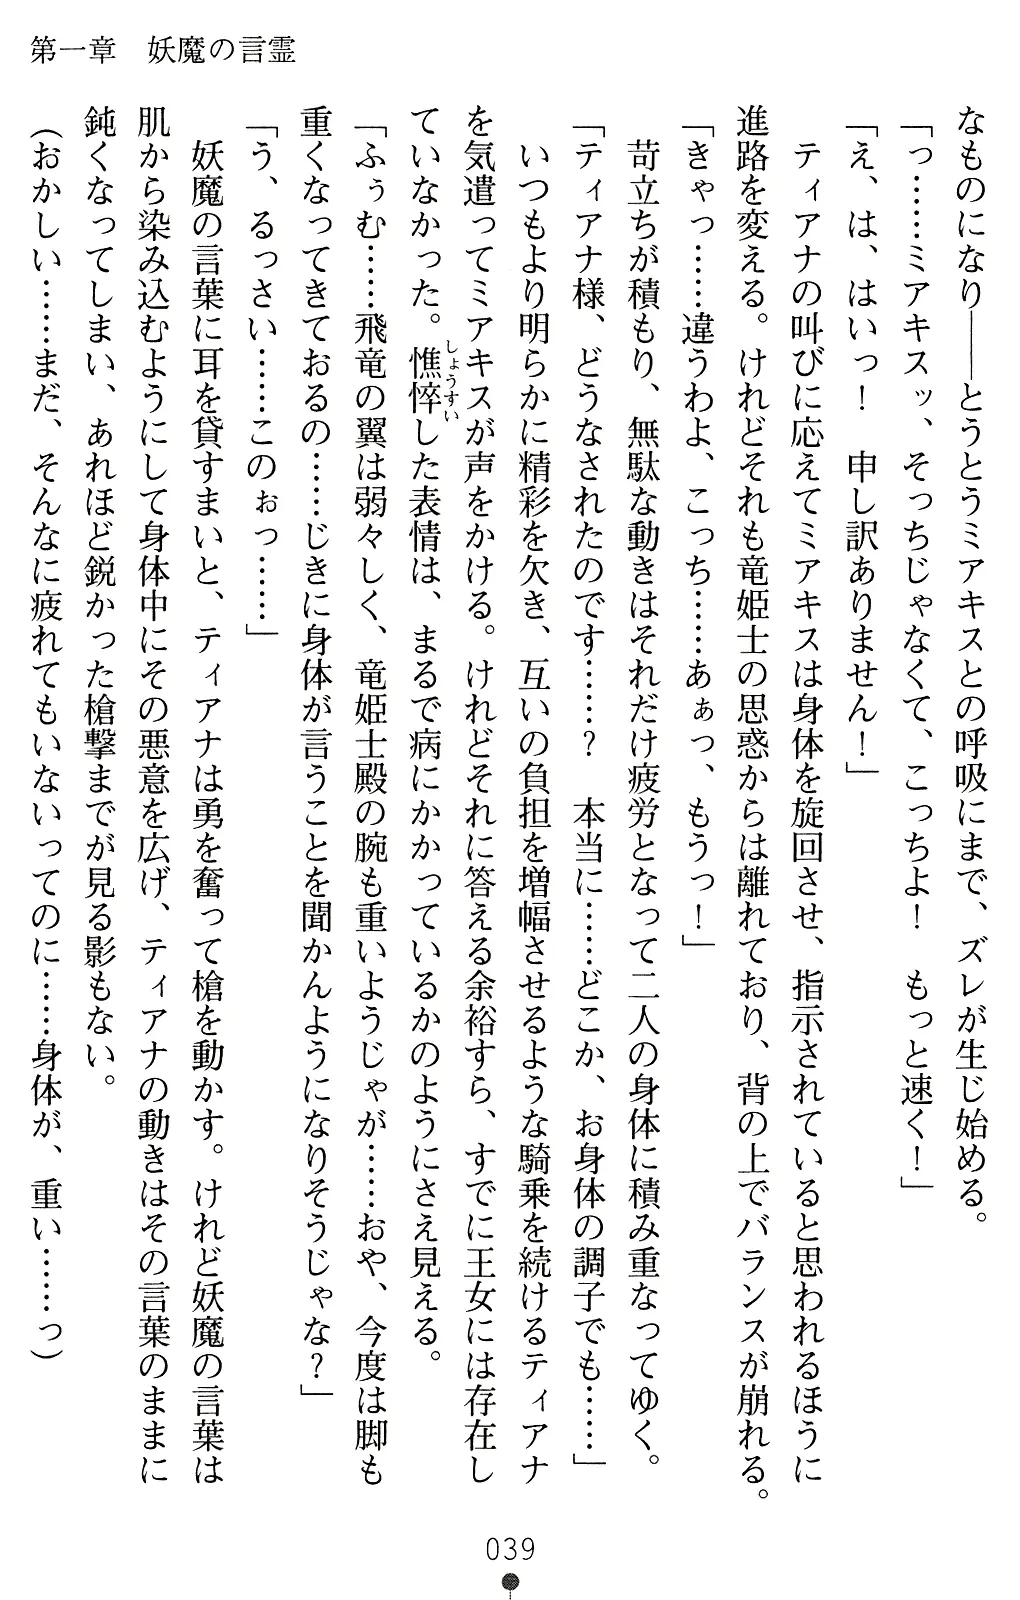 第一章　妖魔の言霊
なものになり――とうとうミアキスとの呼吸にまで、ズレが生じ始める。
「っ……ミアキスッ、そっちじゃなくて、こっちよ！　もっと速く！」
「え、は、はいっ！　申し訳ありません！」
　ティアナの叫びに応えてミアキスは身体を旋回させ、指示されていると思われるほうに
進路を変える。けれどそれも竜姫士の思惑からは離れており、背の上でバランスが崩れる。
「きゃっ……違うわよ、こっち……あぁっ、もうっ！」
　苛立ちが積もり、無駄な動きはそれだけ疲労となって二人の身体に積み重なってゆく。
「ティアナ様、どうなされたのです……？　本当に……どこか、お身体の調子でも……」
　いつもより明らかに精彩を欠き、互いの負担を増幅させるような騎乗を続けるティアナ
を気遣ってミアキスが声をかける。けれどそれに答える余裕すら、すでに王女には存在し
ていなかった。憔悴した表情は、まるで病にかかっているかのようにさえ見える。
しょうすい
「ふぅむ……飛竜の翼は弱々しく、竜姫士殿の腕も重いようじゃが……おや、今度は脚も
重くなってきておるの……じきに身体が言うことを聞かんようになりそうじゃな？」
「う、るっさい……このぉっ……」
　妖魔の言葉に耳を貸すまいと、ティアナは勇を奮って槍を動かす。けれど妖魔の言葉は
肌から染み込むようにして身体中にその悪意を広げ、ティアナの動きはその言葉のままに
鈍くなってしまい、あれほど鋭かった槍撃までが見る影もない。
（おかしい……まだ、そんなに疲れてもいないってのに……身体が、重い……っ）
039